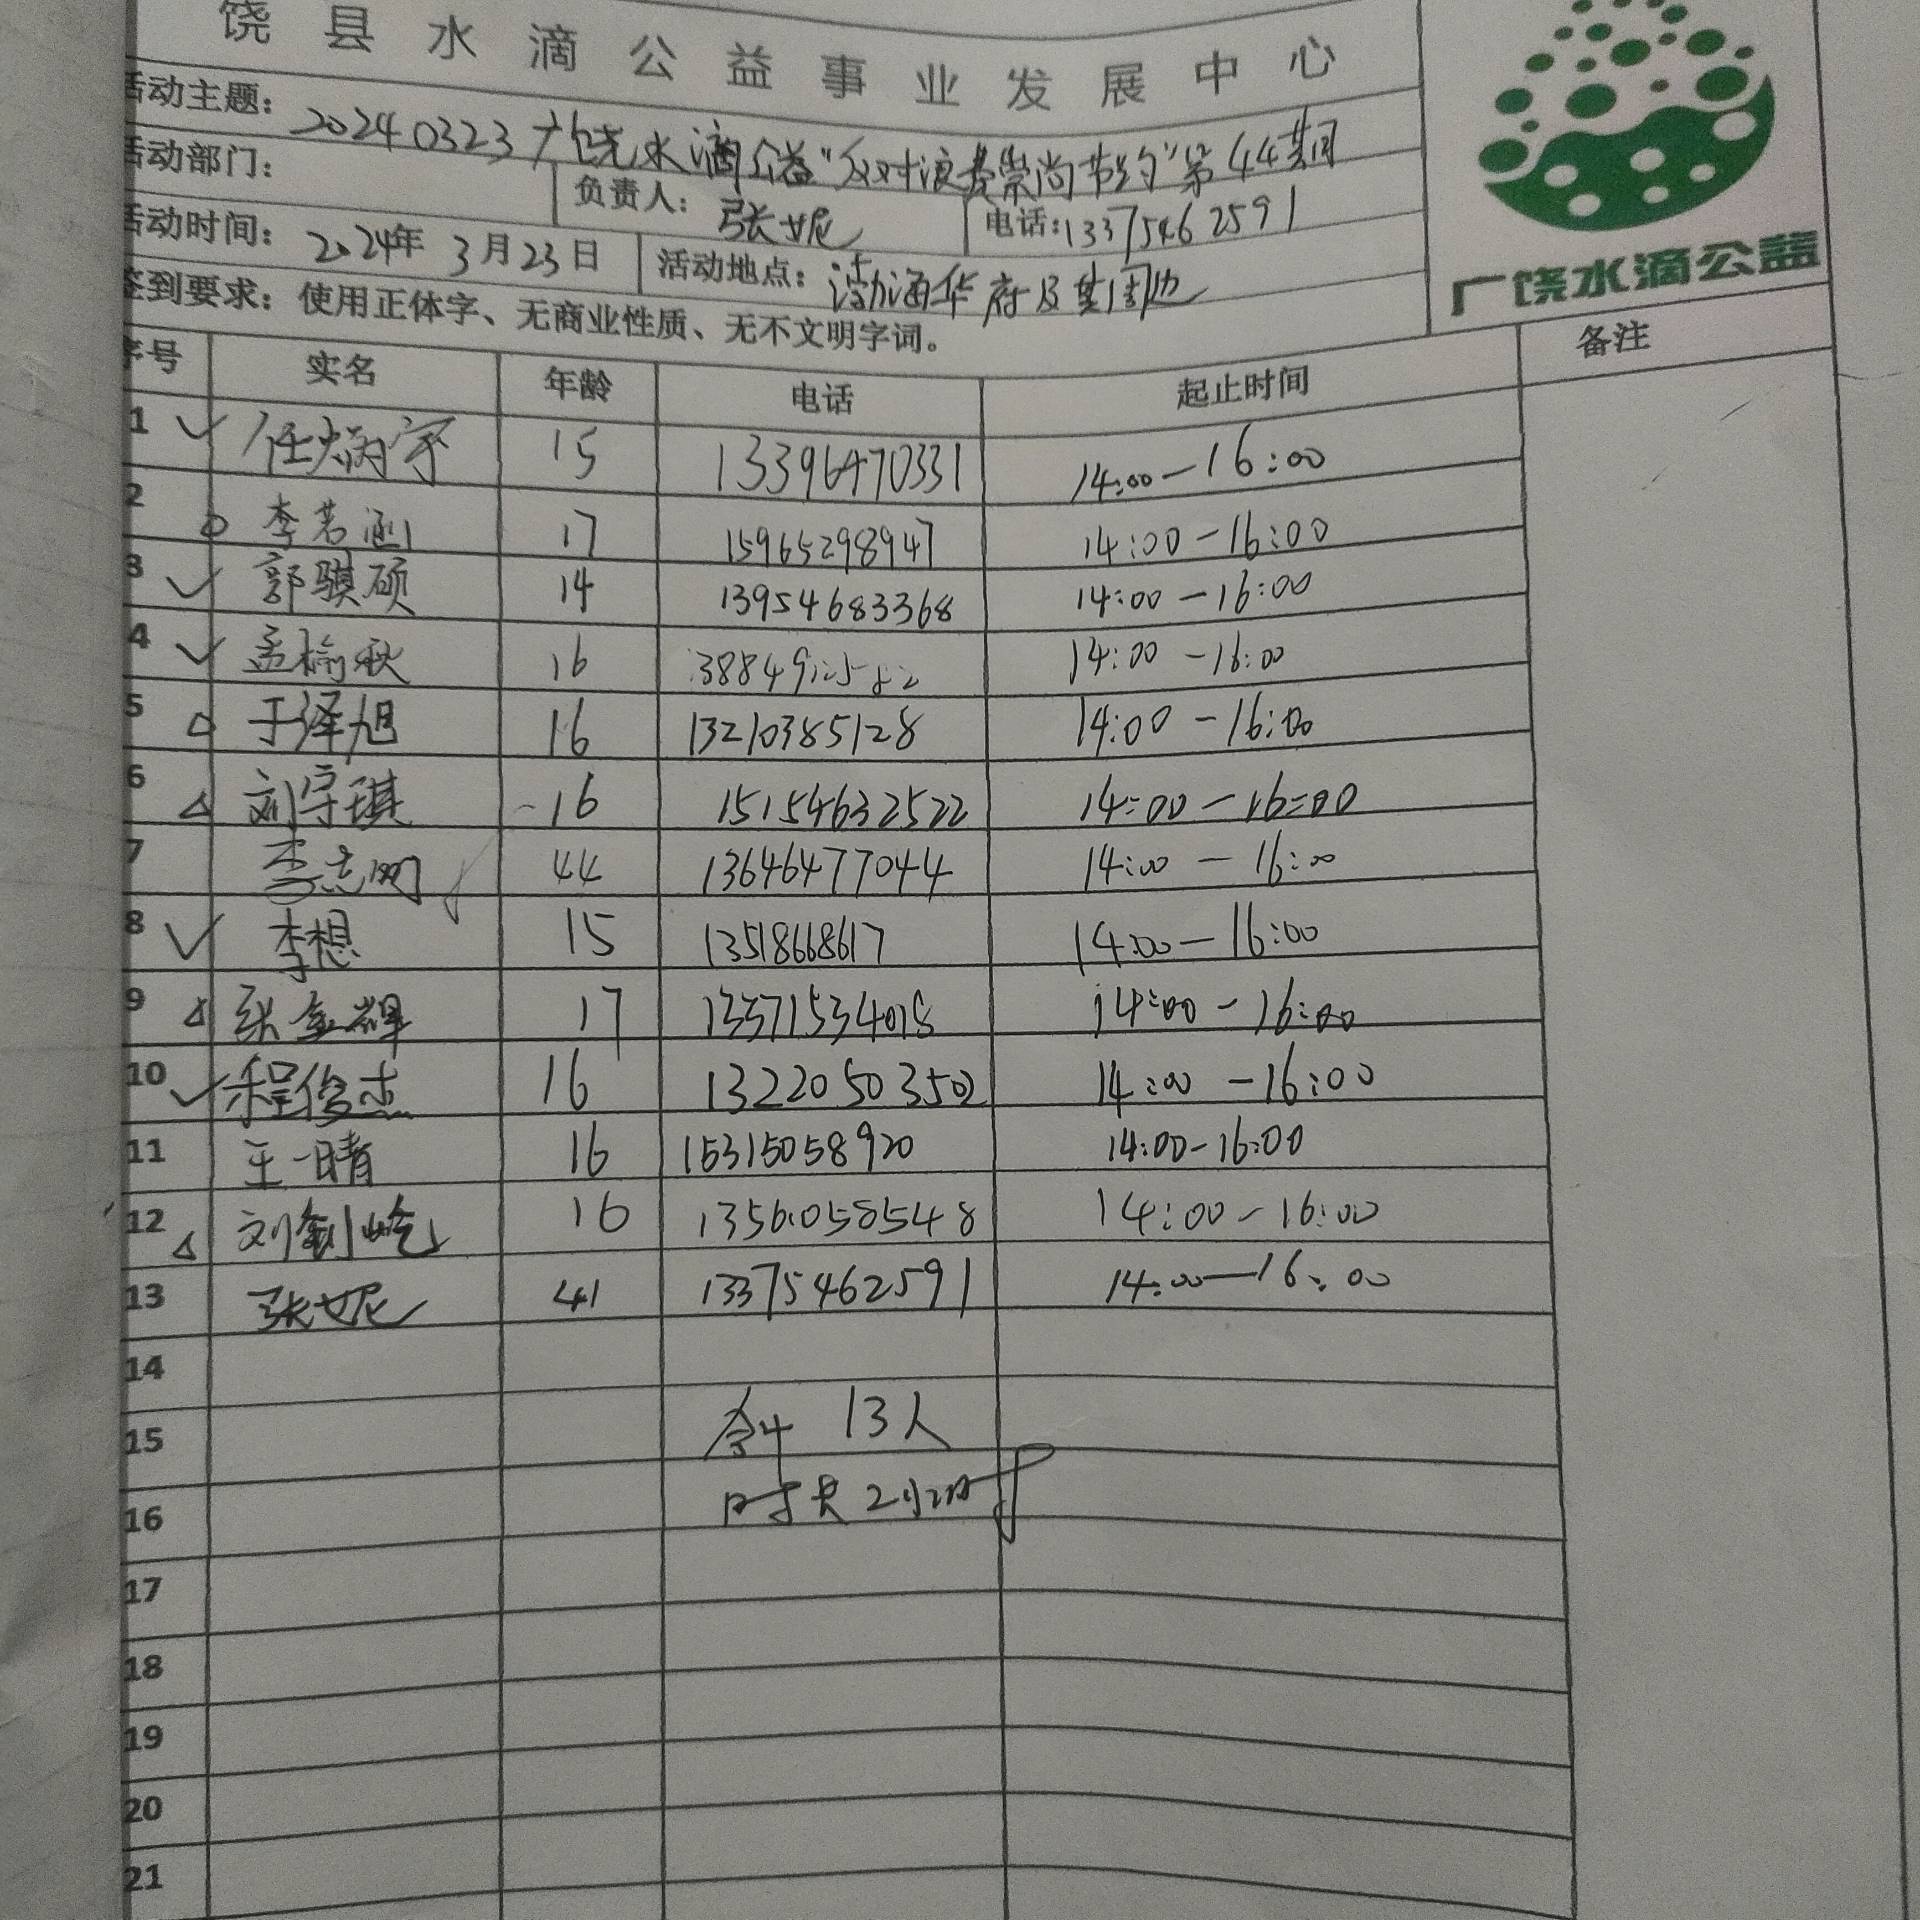 饶县水滴公益事业发展中心
活动主题： 20240323广饶水滴公益“反对浪费崇尚节约”第44期
活动部门： 负责人： 张妮 电话:13375462591
活动时间： 2024年3月23日 活动地点： 渤海华府及其周边
签到要求：使用正体字、无商业性质、无不文明字词。
广饶水滴公益
序号 实名 年龄 电话 起止时间 备注
1 任炳宇 15 13396470331 14:00—16:00
2 李若涵 17 15965298947 14:00-16:00
3 郭骐硕 14 13954683368 14:00-16:00
4 孟榆秋 16 14:00-16:00
5 于泽旭 16 13210385128 14:00-16:00
6 刘宇琪 16 15154632522 14:00-16:00
7 李志刚 44 13646477044 14:00-16:00
8 李想 15 13518668617 14:00-16:00
9 张金辉 17 13371534018 14:00-16:00
10 程俊杰 16 13220503502 14:00-16:00
11 王一晴 16 15315058920 14:00-16:00
12 刘钊屹 16 13561058548 14:00-16:00
13 张妮 41 13375462591 14:00—16:00
14
15 合计 13人
16 时长2小时
17
18
19
20
21